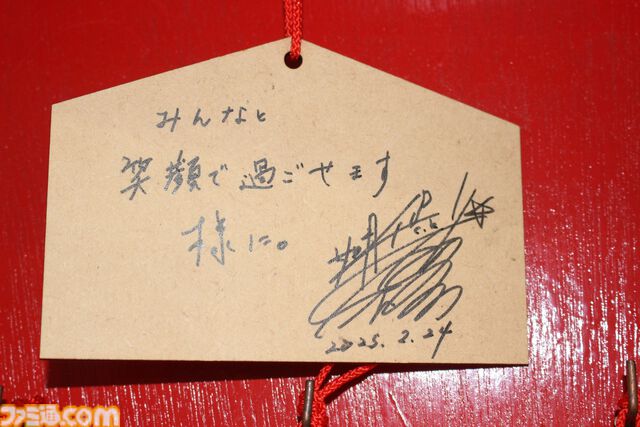 みんなと
笑顔で過ごせます
様に。
2025.2.24
ファミ通.com